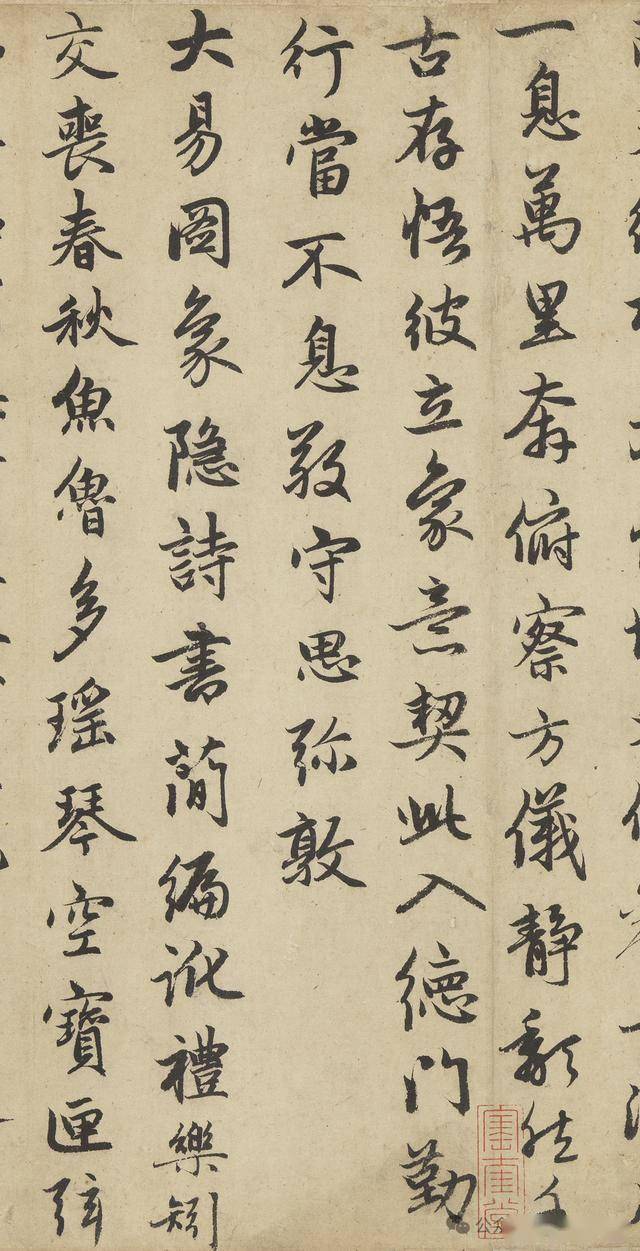 一息萬里奔俯察方儀靜頹然千
古存悟彼立象意契此入德門勤
行當不息敬守思弥敦
大易圖象隱詩書蕳編訛禮樂矧
交喪春秋魚魯多瑶琴空寶匣弦